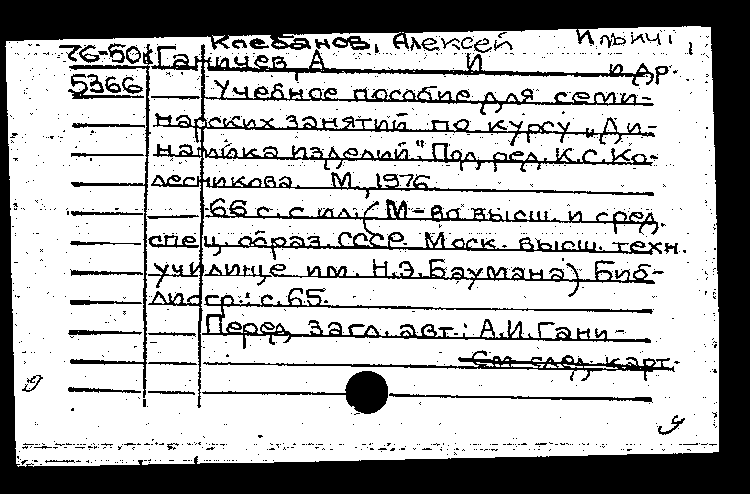 Клебанов, Алексей Ильич
76-50к Ганичев, А И и др.
5366 Учебное пособие для семи-
нарских занятий по курсу „Ди-
намика изделий." Под ред. К.С. Ко-
лесникова. М., 1976.
66 с. с ил. (М-во высш. и сред.
спец. образ. СССР. Моск. высш. техн.
училище им. Н.Э. Баумана) Биб-
лиогр.: с. 65.
Перед загл. авт.: А.И. Гани-
См след. карт.